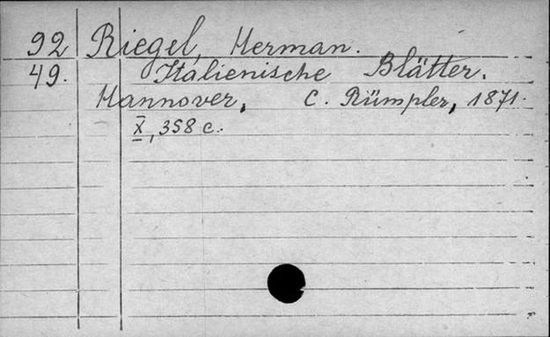 92 Riegel, Herman.
49. Italienische Blätter.
Hannover, C. Rümpler, 1871.
X, 358 c.